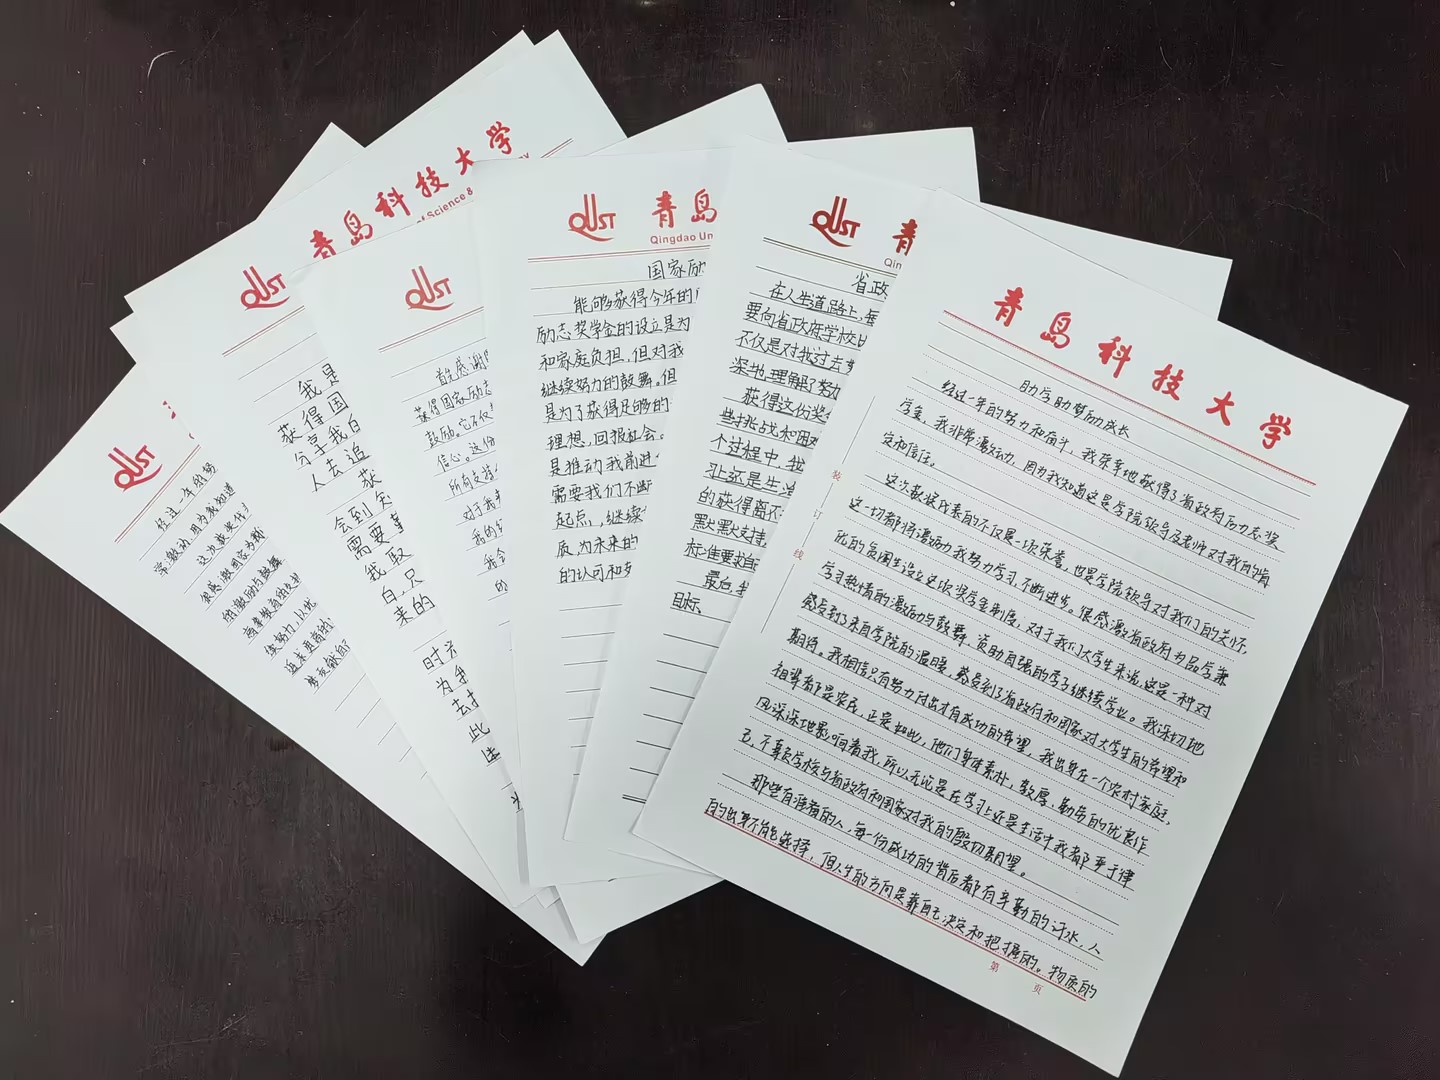 QUST
经过一年的努
常激动,因为我知道
这次获奖代表
很感谢国家为我
种激励与鼓舞
青岛科技大学
of Science &
QUST
我是
获得国
分享我自
人去追
获
会到矢
需要
我取
白,只
来的
时光
为我
去扌
此
QUST
首先感谢
获得国家励志
鼓励。它不仅
信心。这份
所有支持
对于我
QUST 青岛
Qingdao Un
国家励
能够获得今年的
励志奖学金的设立是为
和家庭负担,但对我
继续努力的鼓舞。但
是为了获得足够的
理想,回报社会。
是推动我前进
需要我们不断
起点,继续
质,为未来的
的认可和
QUST 青
Qing
省政
在人生道路上,每
要向省政府学校
不仅是对我过去
深地理解了努力
获得这份奖
些挑战和困难
个过程中,我
习上还是生活
的获得离不
默默支持,
标准要求自
最后,我
目标、
青岛科技大学
助学助梦励成长
经过一年的努力和奋斗,我荣幸地获得了省政府励志奖
学金,我非常激动,因为我知道这是学院领导及老师对我的肯
定和信任。
这次获奖代表的不仅是一次荣誉,也是学院领导对我们的关怀,
这一切都将激励我努力学习,不断进步。很感激省政府为品学兼
优的贫困生设立这次奖学金制度,对于我们大学生来说,这是一种对
学习热情的激励与鼓舞,资助自强的学子继续学业。我深切地
感受到了来自学院的温暖,感受到了省政府和国家对大学生的希望和
期待。我相信只有努力付出才有成功的希望,我出身在一个农村家庭,
祖辈都是农民,正是如此,他们身体素朴,敦厚,勤劳的优良作
风深深地影响着我,所以无论是在学习上还是生活中我都严于律
己,不辜负学校与省政府和国家对我的殷切期望。
那些有准备的人,每一份成功的背后都有辛勤的汗水,人
的出身不能选择,但人生的方向是靠自己决定和把握的。物质的
装
订
线
第 页